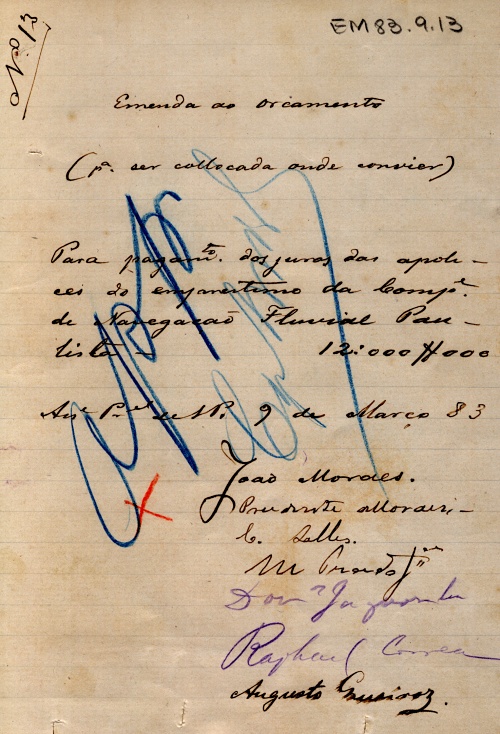 Nº 13
EM83.9.13
Emenda ao orcamento
(pª. ser collocada onde convier)
Para pagamto. dos juros das apoli-
ces do emprestimo da Compª.
de Navegação Fluvial Pau-
lista 12:000$000
de S. P. 9 de Março 83
João Moraes.
Prudente Moraes
C. Salles.
M Prado Jor
Domos Jaguaribe
Raphael Correa
Augusto Queiroz.